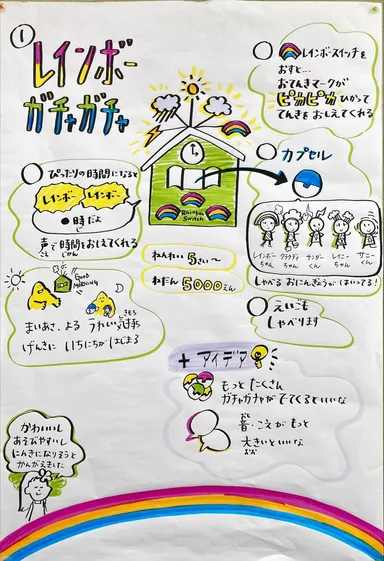 ①
レインボー
ガチャガチャ
レインボースイッチを
おすと…
おてんきマークが
ピカピカひかって
てんきをおしえてくれる
ぴったりの時間になると
レインボー レインボー
●時だよ
声で時間をおしえてくれる
こえ じかん
Rainbow
Switch
カプセル
レインボー
ちゃん
クラウディ
ちゃん
サンダー
くん
レイニー
ちゃん
サニー
くん
しゃべる おにんぎょうが はいってる!
ねんれい 5さい〜
ねだん 5000えん
GOOD
MORNING
まいあさ、よる うれしい気持ち
きもち
げんきに いちにちが はじまる
えいごも
しゃべります
+ アイデア
もっと たくさん
ガチャガチャが でてくるといいな
おと
音・こえが もっと
大きいといいな
おお
かわいいし
あそびやすいし
にんきになりそうと
かんがえました